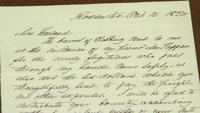 Rochester Oct 15. 1852
My Friend
The barrel of clothing sent to me
at the instance of my friend
for the needy fugitives who pass
through my hands came safely. as
also did the ten dollars which you
thoughtfully sent to pay the freight
and other expenses glad to
distribute your bounty according